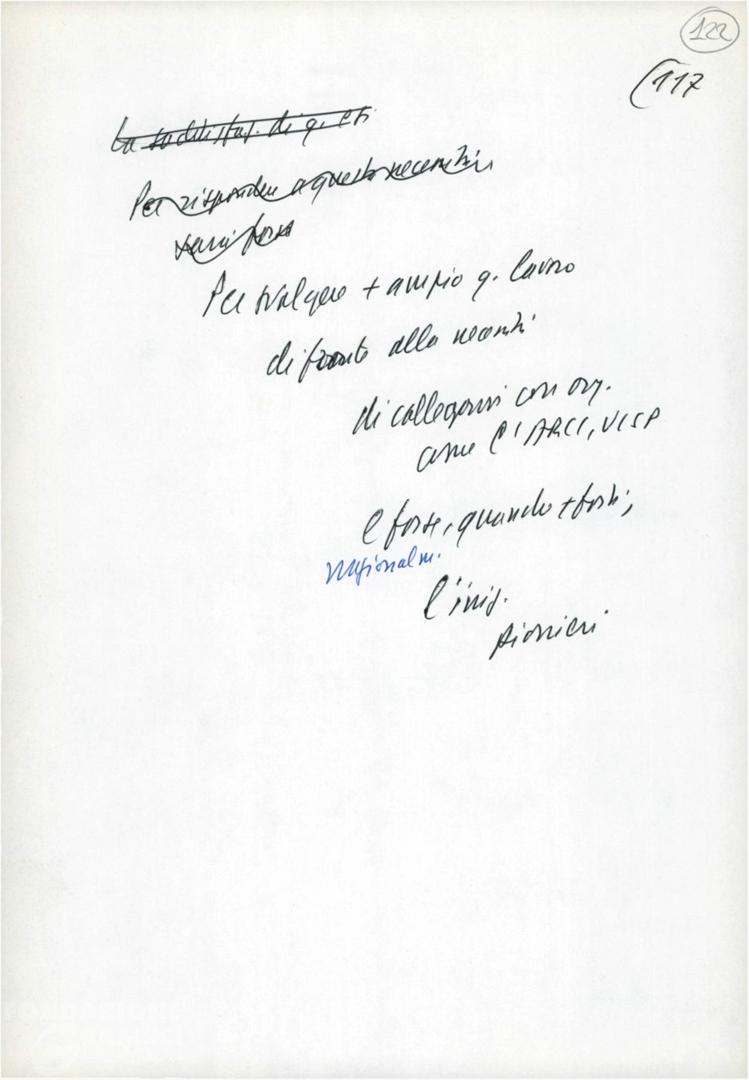 122
(117
La soddisfaz. di q. es
Per rispondere a queste necessità
forse
Per svolgere + ampio q. lavoro
di fronte alla necessità
di collegarsi con org.
come l'ARCI, UISP
e forse, quando + forti,
regionalm.
l'iniz.
pionieri